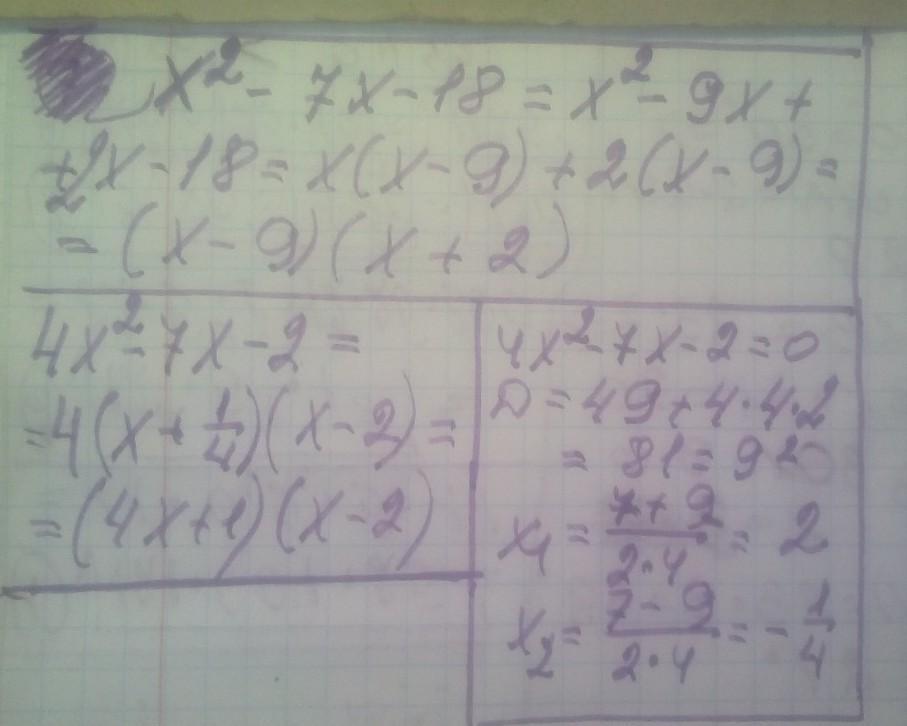 x² - 7x - 18 = x² - 9x +
+ 2x - 18 = x(x - 9) + 2(x - 9) =
= (x - 9)(x + 2)
4x² - 7x - 2 =
= 4(x + 1/4)(x - 2) =
= (4x + 1)(x - 2)
4x² - 7x - 2 = 0
D = 49 + 4·4·2
= 81 = 9²
x₁ = (7 + 9)/(2·4) = 2
x₂ = (7 - 9)/(2·4) = -1/4